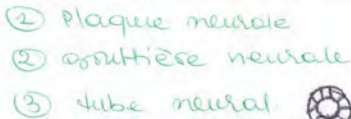 ① Plaque neurale
② gouttière neurale
③ tube neural